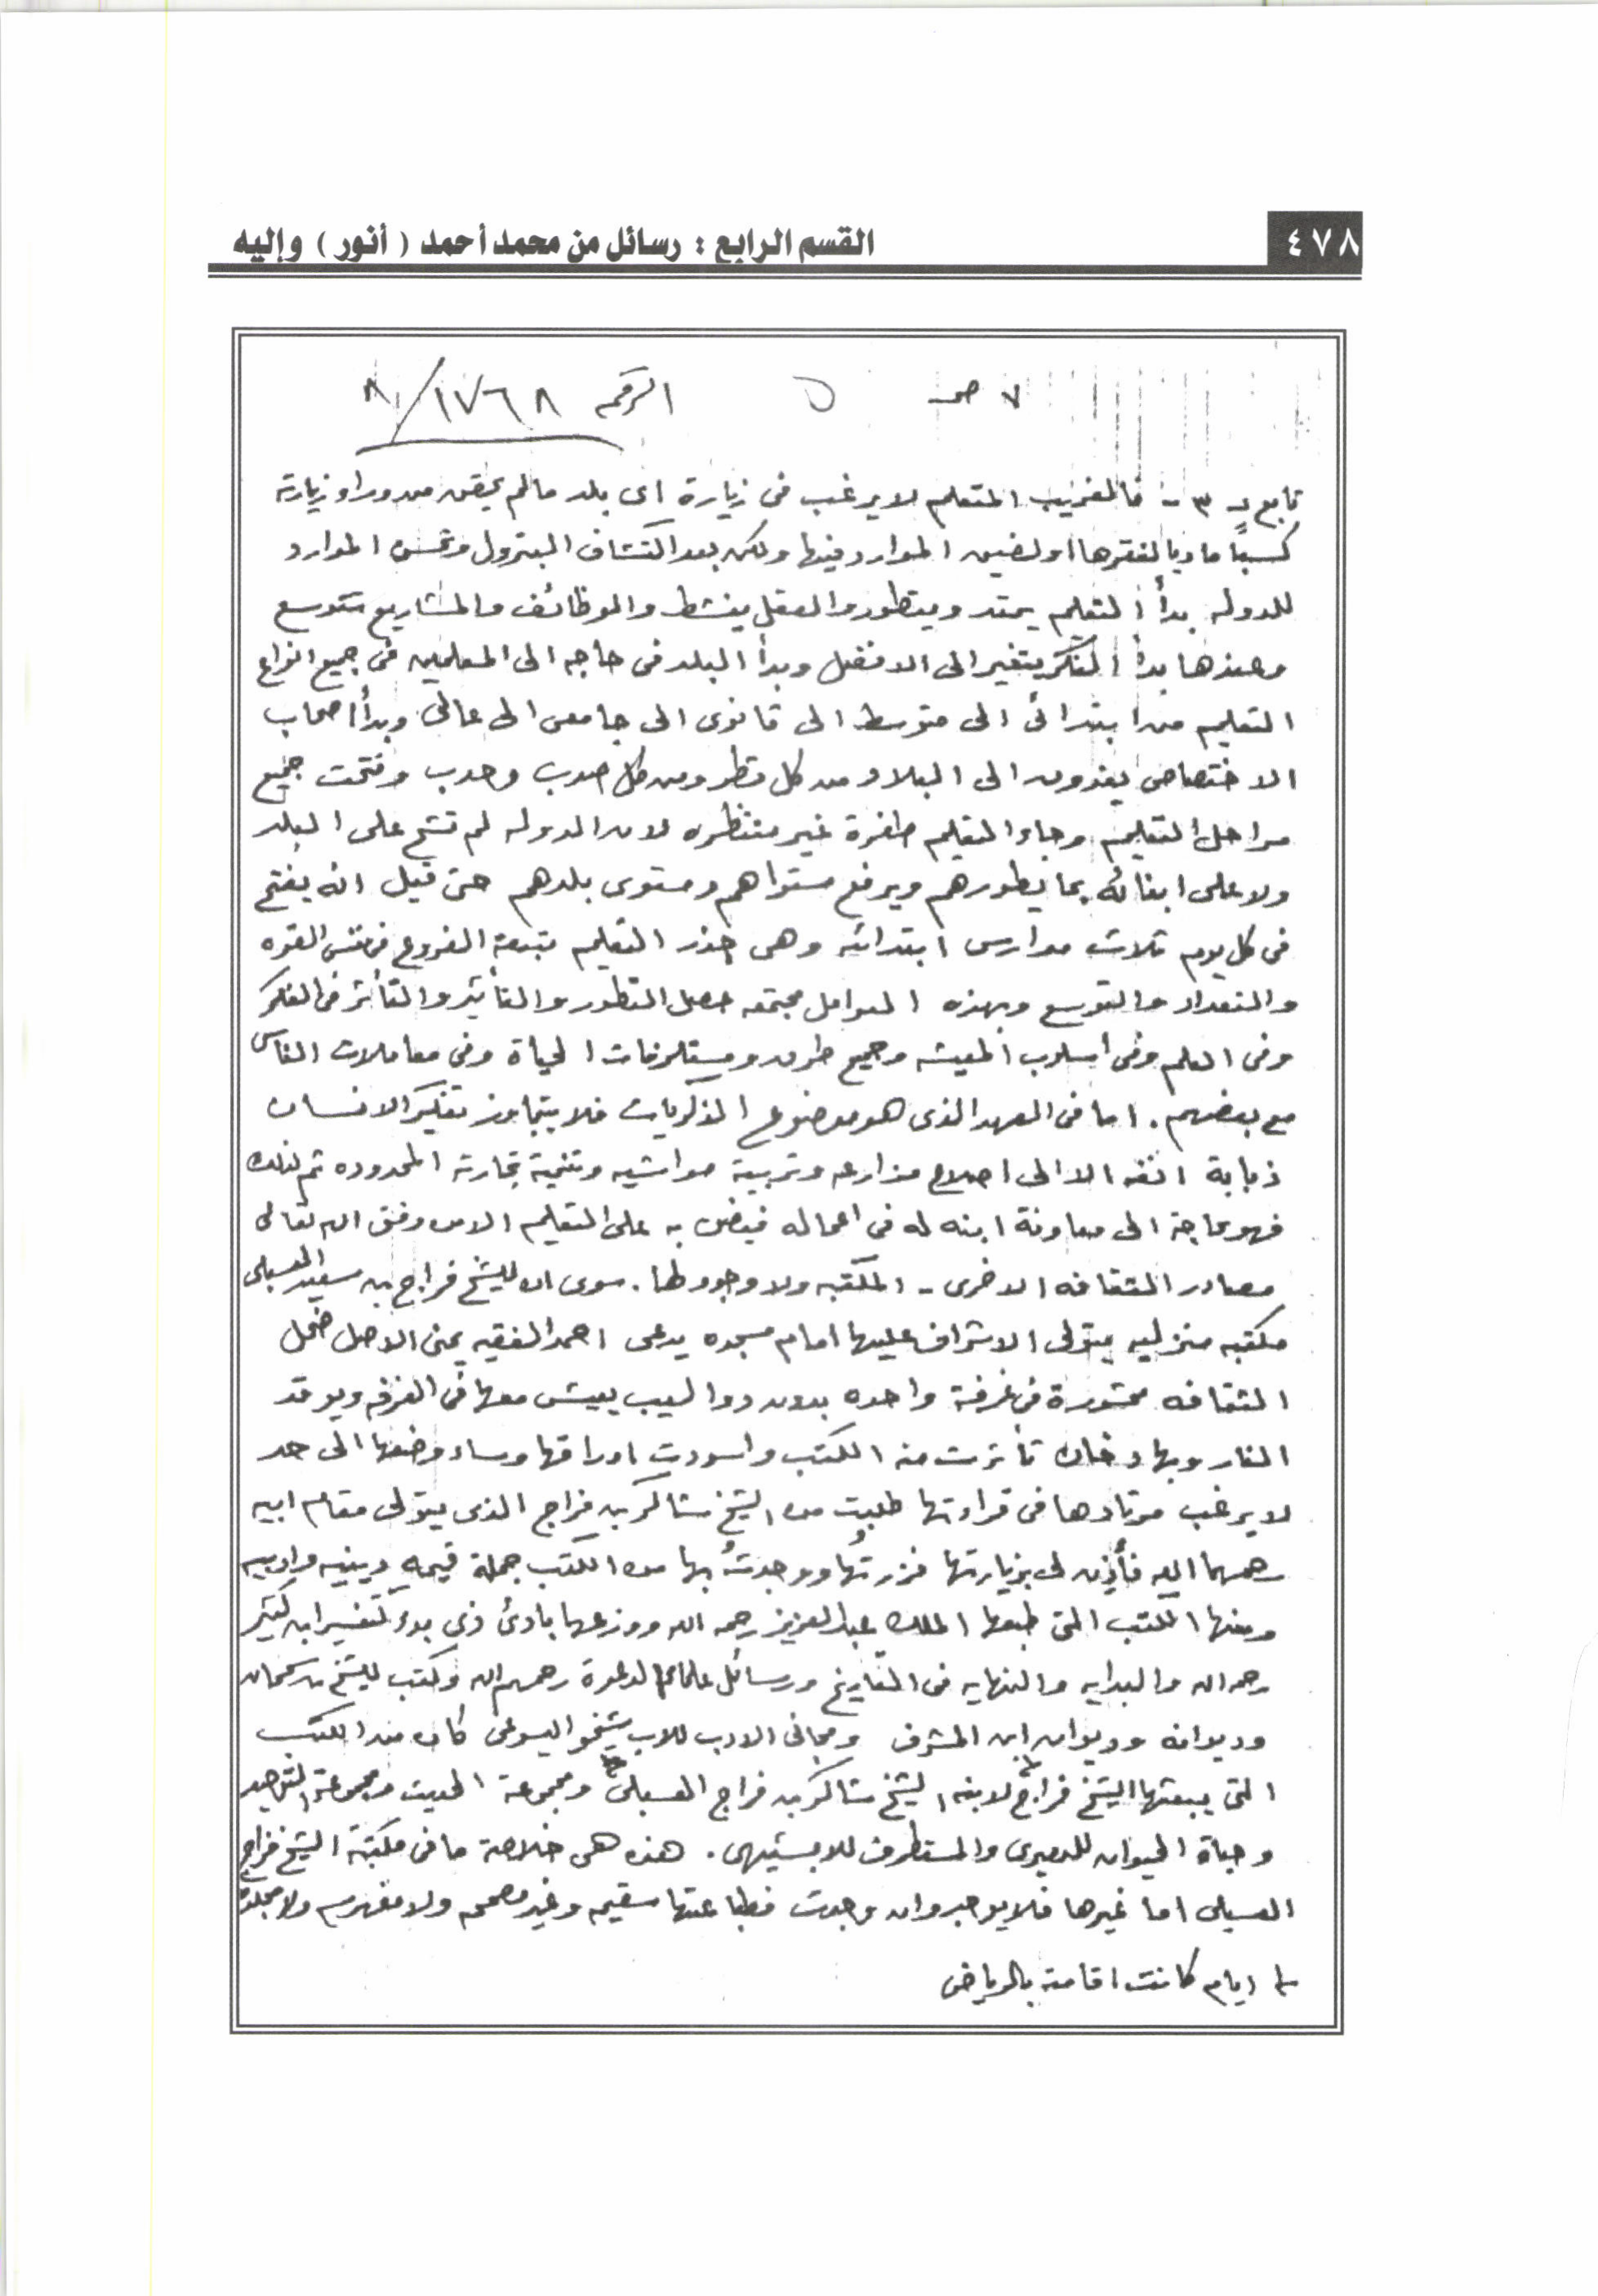 ٤٧٨
القسم الرابع : رسائل من محمد أحمد ( أنور ) وإليه
٧ صـ ٥ الرقم ١٧٦٨/٨
تابع لـ ٣ - فالغريب المتعلم لا يرغب فى زيارة اى بلد ما لم يحقق من وراء زيارته
كسبًا ماديا لفقرها او لضيق الموارد فيها ولكن بعد اكتشاف البترول وتحسن الموارد
للدوله بدأ التعليم يمتد ويتطور والعقل ينشط والوظائف والمشاريع تتوسع
وعندها بدأ الفكر يتغير الى الافضل وبدأ البلد فى حاجه الى المعلمين فى جميع انواع
التعليم من ابتدائى الى متوسط الى ثانوى الى جامعى الى عالى وبدأ اصحاب
الاختصاص يفدون الى البلاد من كل قطر ومن كل صوب وحدب وفتحت جميع
مراحل التعليم وجاء التعليم طفرة غير منتظره لان الدوله لم تشح على البلد
ولا على ابنائه بما يطورهم ويرفع مستواهم ومستوى بلدهم حتى قيل انه يفتح
فى كل يوم ثلاث مدارس ابتدائيه وهى جذر التعليم تتبعه الفروع فى نفس القوه
والتعداد والتوسع وبهذه العوامل مجتمعه حصل التطور والتأثير والتأثر فى الفكر
وفى العلم وفى اسلوب المعيشه وجميع طرق ومستلزمات الحياة وفى معاملات الناس
مع بعضهم . اما فى العهد الذى هو موضوع الذكريات فلا يتجاوز تفكير الانسان
ذبابة انفه الا الى اصلاح مزارعه وتربية مواشيه وتنمية تجارته المحدوده ثم لذلك
فهو بحاجة الى معاونة ابنه له فى اعماله فيضن به على التعليم الا من وفق الله تعالى
مصادر الثقافه الاخرى - المكتبه ولا وجود لها . سوى ان للشيخ فراج بن سعيد العسبلى
مكتبه منزليه يتولى الاشراف عليها امام مسجده يدعى احمد الفقيه يمنى الاصل ضحل
الثقافه محشورة فى غرفة واحده بدون دواليب يعيش معها فى الغرفه ويوقد
النار وبها دخان تأثرت منه الكتب واسودت اوراقها وساء وضعها الى حد
لا يرغب مرتادها فى قراءتها طلبت من الشيخ شاكر بن فراج الذى يتولى مقام ابيه
رحمهما الله فأذن لى بزيارتها فزرتُها ووجدتُ بها من الكتب جملة قيمه دينيه وادبيه
ومنها الكتب التى طبعها الملك عبدالعزيز رحمه الله ووزعها بادئ ذى بدء كتفسير ابن كثير
رحمه الله والبدايه والنهايه فى التاريخ ورسائل علماء الدعوة رحمهم الله وكتب للشيخ بن سحمان
وديوانه وديوان ابن المشرف ومجانى الادب للاب شيخو اليسوعى كان من الكتب
التى يبعثها الشيخ فراج لابنه الشيخ شاكر بن فراج العسبلى ومجموعة الحديث ومجموعة التوحيد
وحياة الحيوان للدميرى والمستطرف للابشيهى . هذه هى خلاصة ما فى مكتبة الشيخ فراج
العسبلى اما غيرها فلا يوجد وان وجدت فطباعتها سقيمه وغير مصححه ولا مفهرسه ولا مجلده
ايام كانت اقامته بالرياض